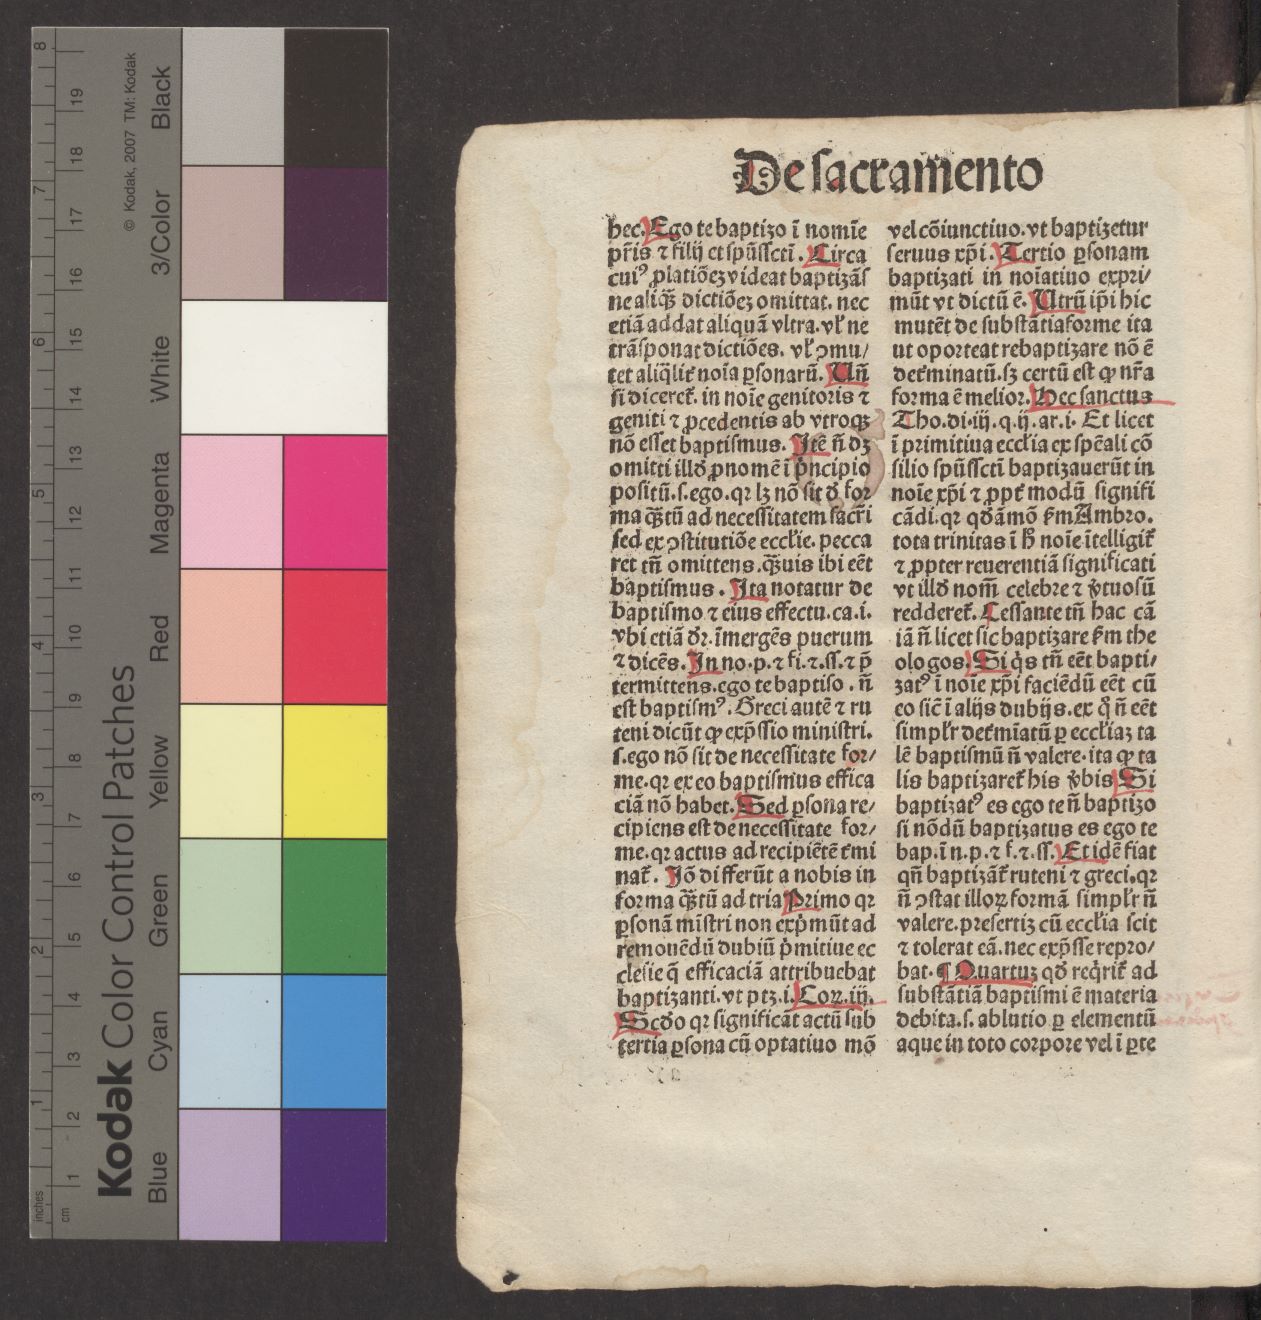 De sacramento
hec. Ego te baptizo ī nomīe
pr̄is ⁊ filij et spūssctī. Circa
cuiꝰ ꝓlatiōeꝫ videat baptizās
ne aliqȝ dictiōeꝫ omittat. nec
etiā addat aliquā vltra. vꝉ ne
trāsponat dictiōes. vꝉ ꝯmu/
tet aliq̄liť noīa ꝑsonarū. Un̄
si diceret᷑. in noīe genitoris ⁊
geniti ⁊ ꝓcedentis ab vtroqȝ
nō esset baptismus. Itē n̄ dꝫ
omitti illď ꝓnomē ī pͥncipio
positū.s.ego.qꝛ lꝫ nō sit ď for
ma qȝtū ad necessitatem sacr̄i
sed ex ꝯstitutiōe eccłie. pecca
ret tn̄ omittens. qȝuis ibi eēt
baptismus. Ita notatur de
baptismo ⁊ eius effectu.ca.i.
vbi etiā dr̄. īmergēs puerum
⁊ dicēs. In no.p.⁊ fi.⁊.ss.⁊ p̄
termittens.ego te baptiso. n̄
est baptismꝰ. Greci autē ⁊ ru
teni dicūt ꝙ exp̄ssio ministri.
s.ego nō sit de necessitate for/
me.qꝛ ex eo baptismus effica
ciā nō habet. Sed ꝑsona re/
cipiens est de necessitate for/
me.qꝛ actus ad recipiētē t᷑mi
nat᷑. Jō differūt a nobis in
forma qȝtū ad tria Primo qꝛ
ꝑsonā mīstri non expͥmūt ad
remouēdū dubiū pͥmitiue ec
clesie q̄ efficaciā attribuebat
baptizanti. vt ptꝫ.i. Coꝝ.iij.
Scďo qꝛ significāt actū sub
tertia ꝑsona cū optatiuo mō
vel cōiunctiuo. vt baptizetur
seruus xp̄i. Tertio ꝑsonam
baptizati in noīatiuo expri/
mūt vt dictū ē. Utrū ip̄i hic
mutēt de substātia forme ita
ut oporteat rebaptizare nō ē
det᷑minatū.sꝫ certū est ꝙ nr̄a
forma ē melior. Hec sanctus
Tho.di.iij.q.ij.ar.i. Et licet
ī primitiua eccłia ex spēali cō
silio spūssctī baptizauerūt in
noīe xp̄i ⁊ ꝓpť modū signifi
cādi.qꝛ qďāmō ẜm Ambro.
tota trinitas ī ħ noīe ītelligit᷑
⁊ ꝓpter reuerentiā significati
vt illď nom̄ celebre ⁊ v̓tuosū
redderet᷑. Cessante tn̄ hac cā
iā n̄ licet sic baptizare ẜm the
ologos. Si qͥs tn̄ eēt bapti/
zatꝰ ī noīe xp̄i faciēdū eēt cū
eo sic̄ ī alijs dubijs. ex qͦ n̄ eēt
simplr̄ det᷑mīatū ꝑ eccłiaꝫ ta
lē baptismū n̄ valere. ita ꝙ ta
lis baptizaret᷑ his v̓bis Si
baptizatꝰ es ego te n̄ baptizo
si nōdū baptizatus es ego te
bap.ī n.p.⁊ f.⁊.ss. Et idē fiat
qn̄ baptizāt᷑ ruteni ⁊ greci.qꝛ
n̄ ꝯstat illoꝝ formā simplr̄ n̄
valere. presertiꝫ cū eccłia scit
⁊ tolerat eā. nec exp̄sse repro/
bat. ¶ Quartuꝫ qď reqͥrit᷑ ad
substātiā baptismi ē materia
debita.s. ablutio ꝑ elementū
aque in toto corpore vel ī ꝑte
Kodak Color Control Patches
Blue Cyan Green Yellow Red Magenta White 3/Color Black
© Kodak, 2007 TM: Kodak
inches 1 2 3 4 5 6 7 8
cm 1 2 3 4 5 6 7 8 9 10 11 12 13 14 15 16 17 18 19